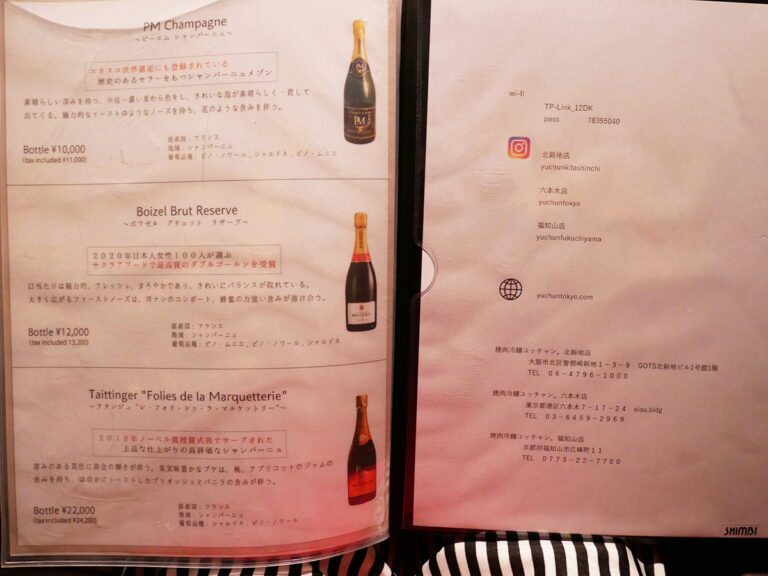 PM Champagne
～ピーエム シャンパーニュ～
ユネスコ世界遺産にも登録されている
歴史のあるセラーをもつシャンパーニュメゾン
素晴らしい深みを持つ、中位～濃い麦わら色をし、きれいな泡が素晴らしく一貫して
出てくる。魅力的なイーストのようなノーズを持ち、花のような含みを伴う。
Bottle ¥10,000
(tax included ¥11,000)
原産国：フランス
地域：シャンパーニュ
葡萄品種：ピノ・ノワール、シャルドネ、ピノ・ムニエ
Boizel Brut Reserve
～ボワゼル ブリュット リザーヴ～
2020年日本人女性100人が選ぶ
サクラアワードで最高賞のダブルゴールドを受賞
口当たりは魅力的、フレッシュ、まろやかであり、きれいにバランスが取れている。
大きく広がるファーストノーズは、洋ナシのコンポート、蜂蜜の力強い含みが溶け合う。
Bottle ¥12,000
(tax included 13,200)
原産国：フランス
地域：シャンパーニュ
葡萄品種：ピノ・ムニエ、ピノ・ノワール、シャルドネ
Taittinger "Folies de la Marquetterie"
～テタンジェ "レ・フォリ・ドゥ・ラ・マルケットリー"～
ノーベル賞授賞式典でサーブされた
上品な仕上がりの高評価なシャンパーニュ
深みのある黄色に黄金の輝きが伴う。果実味豊かなブケは、桃、アプリコットのジャムの
含みを持ち、ほのかにトーストしたブリオッシュとバニラの含みが伴う。
Bottle ¥22,000
(tax included ¥24,200)
原産国：フランス
地域：シャンパーニュ
葡萄品種：シャルドネ、ピノ・ノワール
wi-fi
TP-Link_12DK
pass 78355040
北新地店
yuchunkitashinchi
六本木店
yuchuntokyo
福知山店
yuchunfukuchiyama
yuchuntokyo.com
焼肉冷麺ユッチャン。北新地店
大阪市北区曽根崎新地1－3－9 GOTS北新地ビル1号館1階
TEL 06－4796－1000
焼肉冷麺ユッチャン。六本木店
東京都港区六本木7－17－24 eisu.bldg
TEL 03－6459－2969
焼肉冷麺ユッチャン。福知山店
京都府福知山市広峰町11
TEL 0773－22－7700
SHIMBI